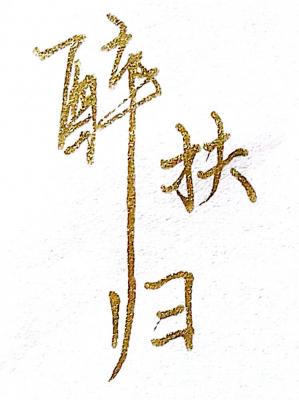 醉扶归